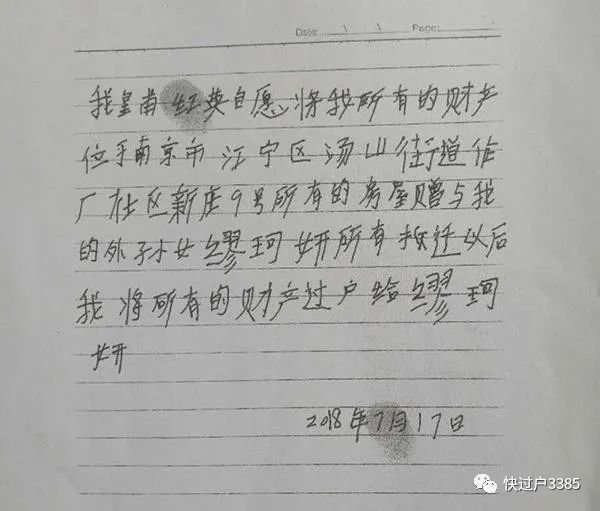 Date: \ \ Page:
我皇甫红英自愿、将我所有的财产
位于南京市江宁区汤山街道作
厂社区新庄9号所有的房屋赠与我
的外孙女缪珂妍所有拆迁以后
我将所有的财产过户给缪珂
妍
2018年7月17日
快过户3385